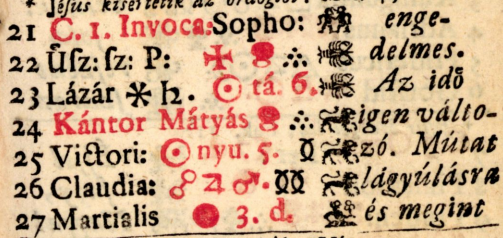 Jésus kisértetik az ördögtöl.
21 C. 1. Invoca: Sopho: enge-
22 Üſz: ſz: P: ✠ ∴ delmes.
23 Lázár ✶ ♄. ☉ tá. 6. Az idő
24 Kántor Mátyás ∴ igenválto-
25 Victori: ☉ nyu. 5. zó. Mútat
26 Claudia: ☍ ♃ ♂. lágyúlásra
27 Martialis ● 3. d. és megint